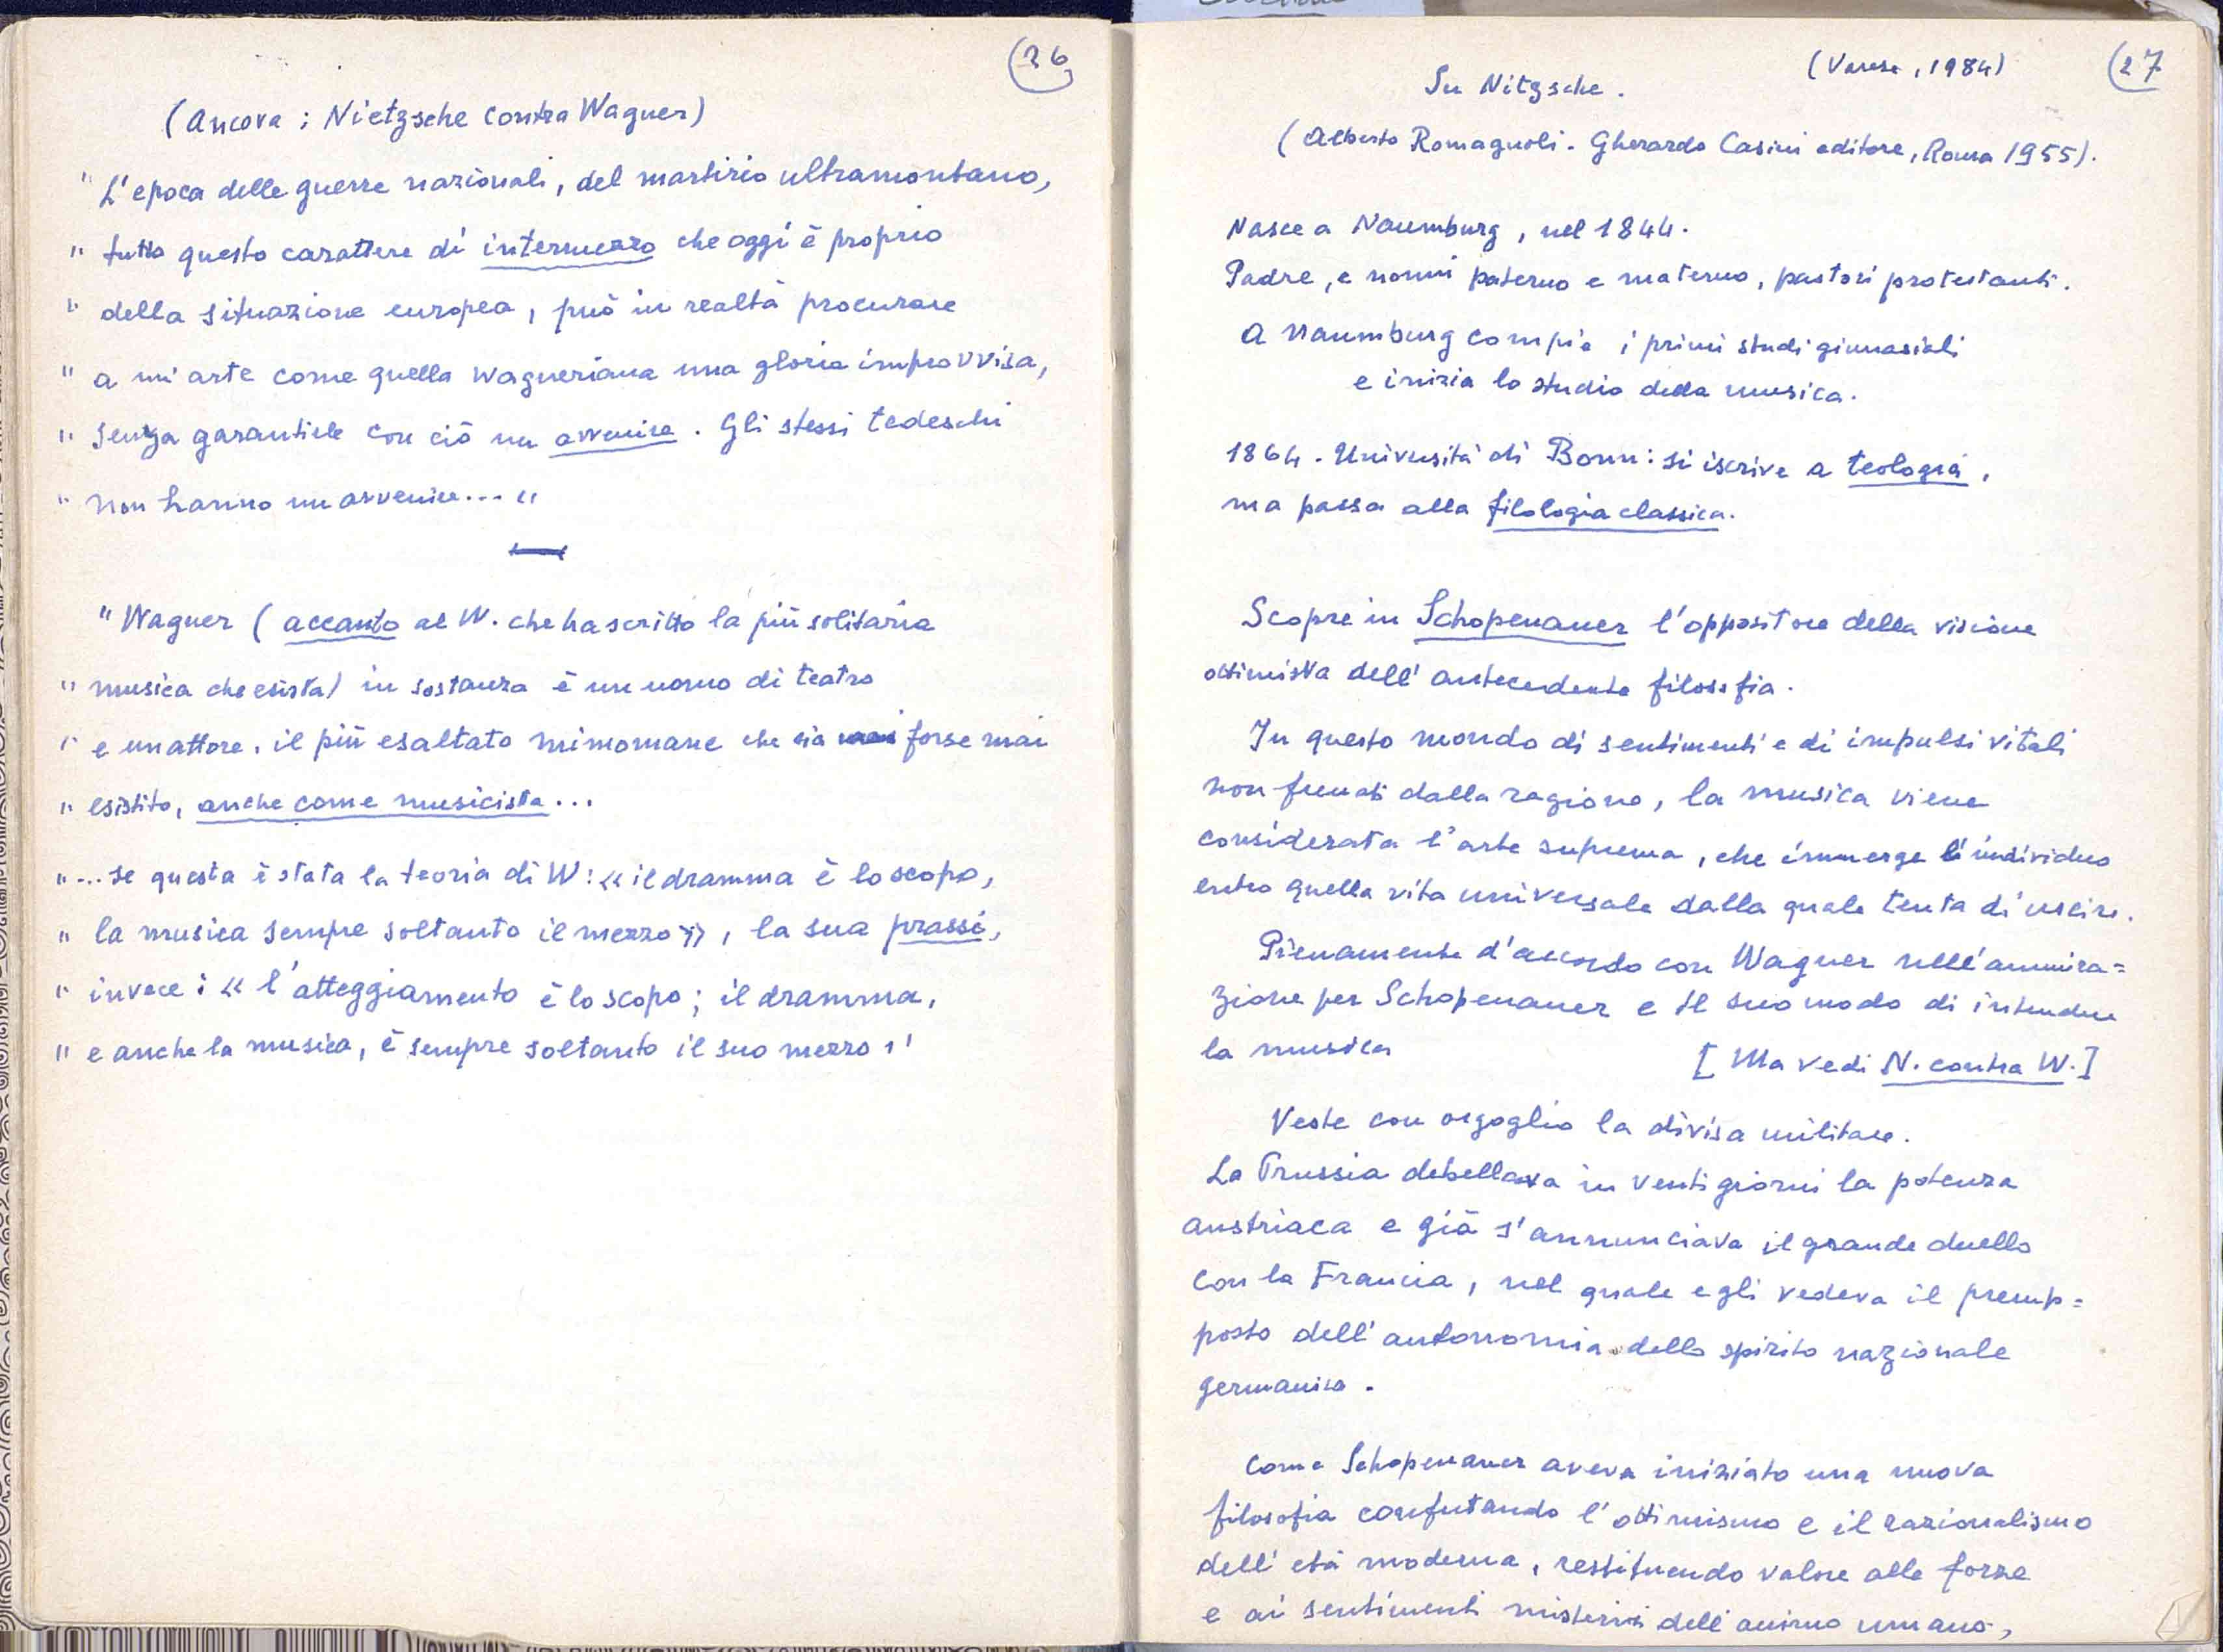 (26
(Ancora : Nietzsche contra Wagner)
" L'epoca delle guerre nazionali, del martirio ultramontano,
" tutto questo carattere di intermezzo che oggi è proprio
" della situazione europea, può in realtà procurare
" a un'arte come quella wagneriana una gloria improvvisa,
" senza garantirle con ciò un avvenire. Gli stessi tedeschi
" non hanno un avvenire... "
" Wagner (accanto al W. che ha scritto la più solitaria
" musica che esista) in sostanza è un uomo di teatro
" e un attore, il più esaltato mimomane che sia forse mai
" esistito, anche come musicista...
" ... se questa è stata la teoria di W: « il dramma è lo scopo,
" la musica sempre soltanto il mezzo », la sua prassi,
" invece : « l'atteggiamento è lo scopo; il dramma,
" e anche la musica, è sempre soltanto il suo mezzo "
(Varese, 1984)
(27
Su Nitzsche.
(Alberto Romagnoli. Gherardo Casini editore, Roma 1955).
Nasce a Naumburg, nel 1844.
Padre, e nonni paterno e materno, pastori protestanti.
A Naumburg compie i primi studi ginnasiali
e inizia lo studio della musica.
1864. Università di Bonn: si iscrive a teologia,
ma passa alla filologia classica.
Scopre in Schopenauer l'oppositore della visione
ottimista dell'antecedente filosofia.
In questo mondo di sentimenti e di impulsi vitali
non frenati dalla ragione, la musica viene
considerata l'arte suprema, che immerge l'individuo
entro quella vita universale dalla quale tenta di uscire.
Pienamente d'accordo con Wagner nell'ammira=
zione per Schopenauer e il suo modo di intendere
la musica
[Ma vedi N. contra W.]
Veste con orgoglio la divisa militare.
La Prussia debellava in venti giorni la potenza
austriaca e già s'annunciava il grande duello
con la Francia, nel quale egli vedeva il presup=
posto dell'autonomia dello spirito nazionale
germanico.
Come Schopenauer aveva iniziato una nuova
filosofia confutando l'ottimismo e il razionalismo
dell'età moderna, restituendo valore alle forze
e ai sentimenti misteriosi dell'animo umano,